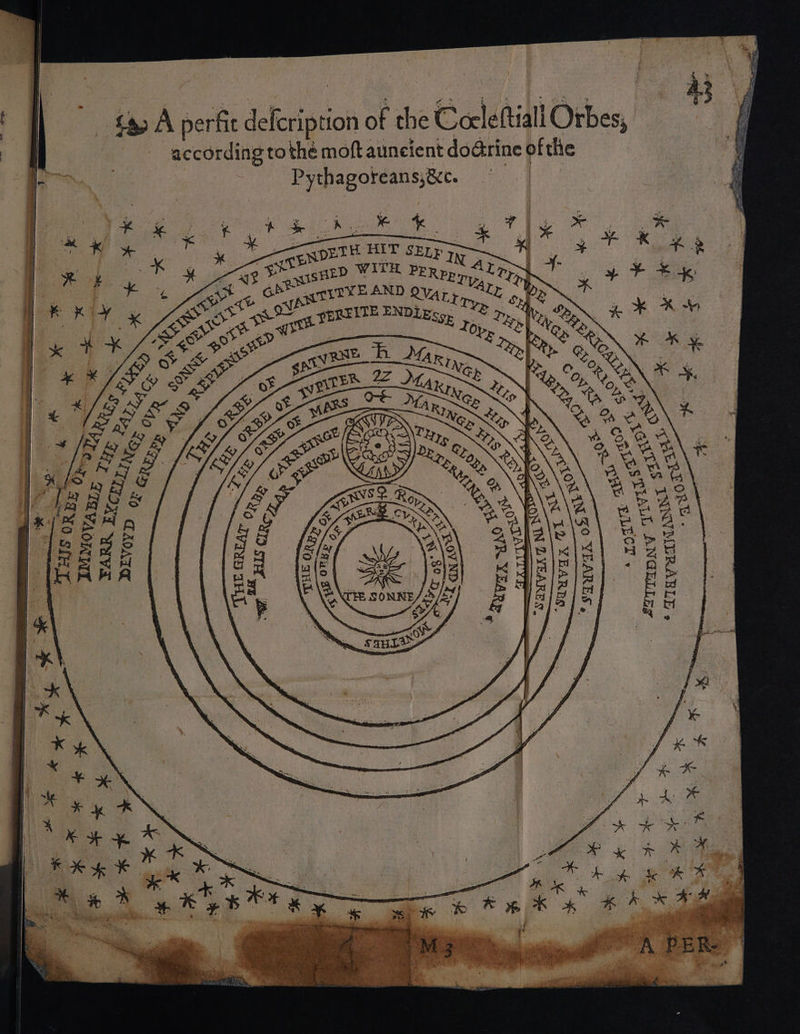 43
A perfit deſcription of the Cœleſtiall Orbes,
according to the moſt auncient doctrine of the
Pythagoreans, &c.
THIS ORBE OF STARRES FIXED INFINITELY VP EXTENDETH HIT SELF IN ALTITVDE SPHERICALLYE, AND THERFORE
IMMOVABLE THE PALLACE OF FOELICITYE GARNISHED WITH PERPETVALL SHININGE GLORIOVS LIGHTES INNVMERABLE.
FARR EXCELLINGE OVR SONNE BOTH IN QVANTITYE AND QVALITYE THE VERY COVRT OF COELESTIALL ANGELLES
DEVOYD OF GREEFE AND REPLENISHED WITH PERFITE ENDLESSE IOYE THE HABITACLE FOR THE ELECT.
THE ORBE OF SATVRNE ♄ MAKINGE HIS REVOLVTION IN 30 YEARES.
THE ORBE OF IVPITER ♃ MAKINGE HIS PERIODE IN 12 YEARES.
THE ORBE OF MARS ♂ MAKINGE HIS REVOLVTION IN 2 YEARES.
THE GREAT ORBE CARREINGE THIS GLOBE OF MORTALITYE
HIS CIRCVLAR PERIODE DETERMINETH OVR YEARE.
THE ORBE OF VENVS ♀ ROVLETH ROVND IN 9 MONETHES
THE ORBE OF MER CVRY IN 80 DAYES
THE SONNE
M 3
A PER-